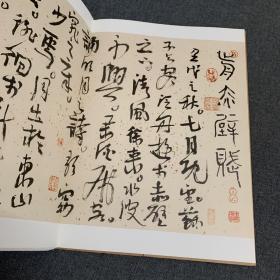 前赤壁賦
壬戌之秋七月既望蘇
子與客泛舟遊於赤壁
之下清風徐來水波
不興舉酒屬客
誦明月之詩歌窈
窕之章
少焉月出於東山